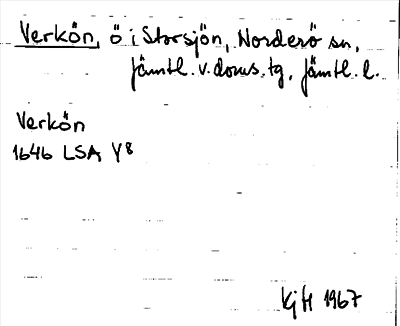 Verkön, ö i Storsjön, Norderö sn,
Jämtl. v. doms. tg, Jämtl. l.
Verkön
1646 LSA Y8
KjH 1967